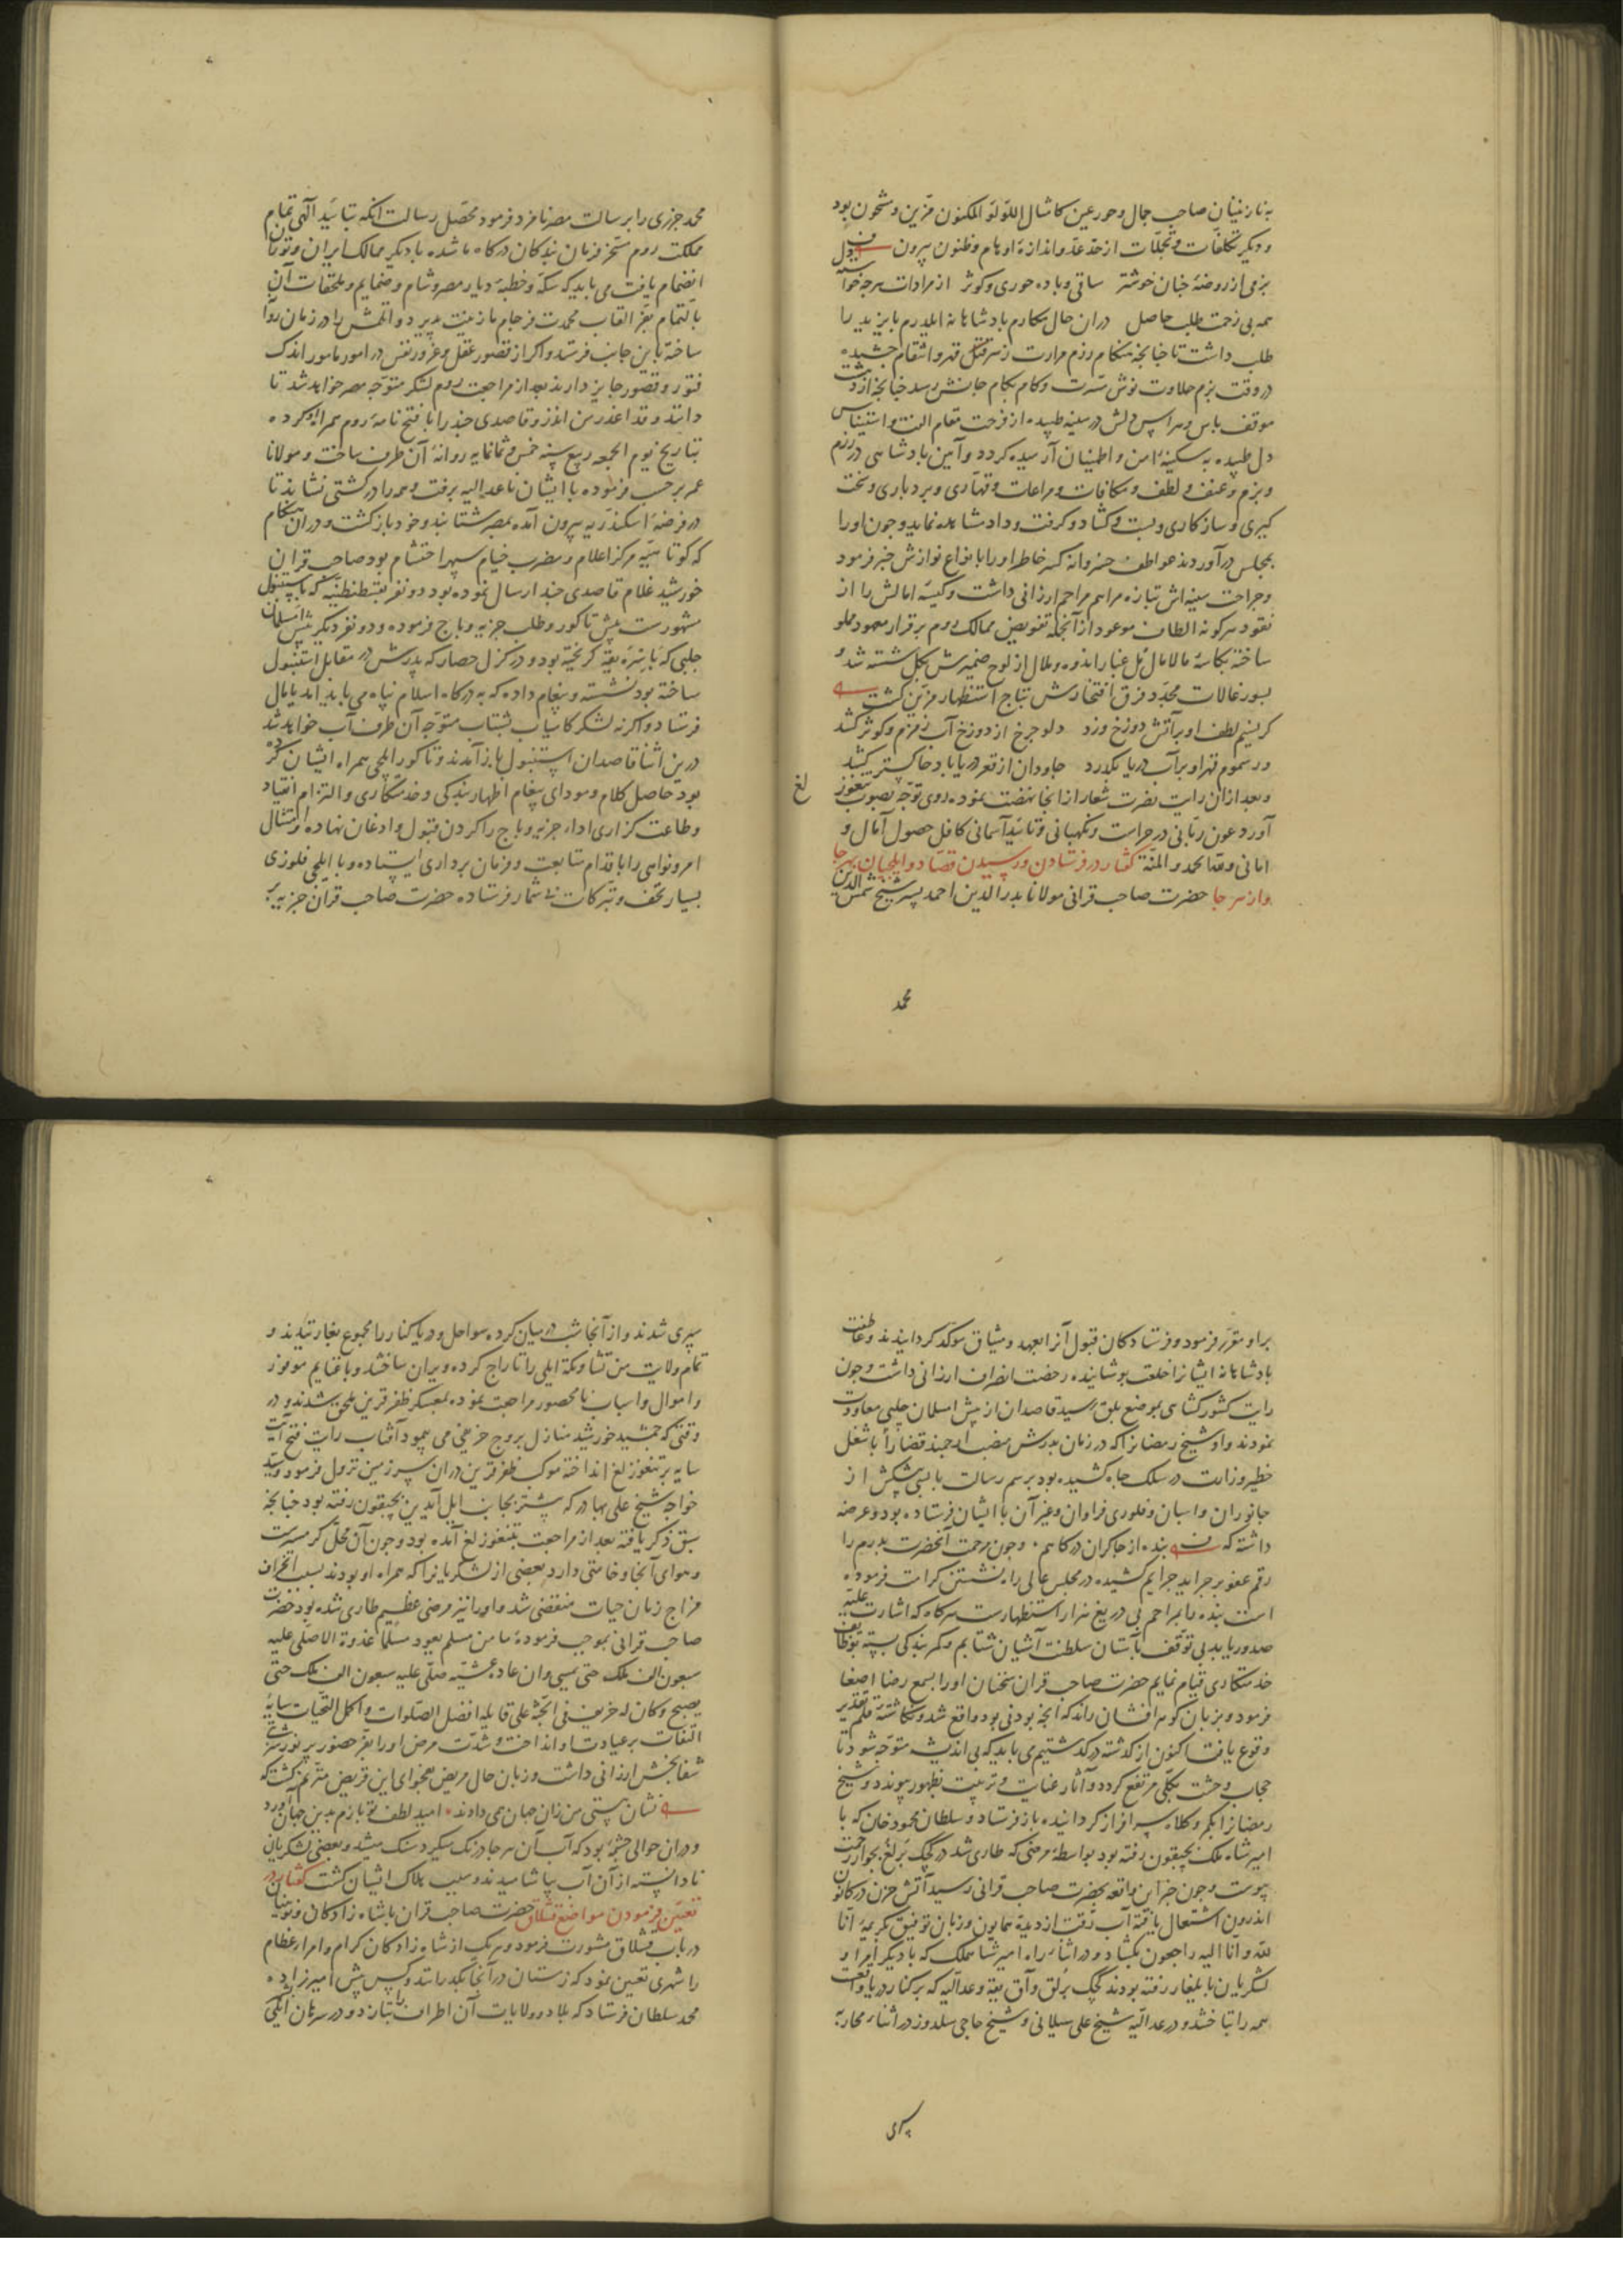 به نازنینان صاحب جمال و حور عین کامثال اللؤلؤ المکنون مزین و مشحون بود
و دیگر تکلفات و تجملات از حد عد و اندازهٔ اوهام و ظنون بیرون
بزمی از روضهٔ جنان خوشتر ساقی و باده حوری و کوثر از مرادات هرچه خواسته دل
همه بی زحمت طلب حاصل دران حال مکارم پادشاهانه ایلدرم بایزید را
طلب داشت تا چنانچه هنگام رزم مرارت زهر قتل قهر و انتقام چشیده
در وقت بزم حلاوت نوش مسرت و کام بکام جانش رسد چنانچه از دهشت
موقف باس و هراس دلش در سینه طپیده از فرحت مقام الفت و استیناس
دل طپیده به سکینهٔ امن و اطمینان آرمیده کردد و آیین پادشاهی در رزم
و بزم و عنف و لطف و مکافات و مراعات و قهاری و بردباری و سخت
کیری و سازکاری و بست و کشاد و کرفت و داد مشاهده نماید و چون او را
بمجلس در آوردند عواطف خسروانه کسر خاطر او را بانواع نوازش جبر فرمود
و جراحت سینه اش بتازه مراهم مراحم ارزانی داشت و کیسهٔ امالش را از
نقود هرکونه الطاف موعود از آنجمله تفویض ممالک روم برقرار معهود مملو
ساخته بکاسهٔ مالامال مل غبار اندوه و ملال از لوح ضمیرش بکل شسته شد و
بسورغالات مجدد فرق افتخارش بتاج استظهار مزین کشت
کر نسیم لطف او بر آتش دوزخ وزد دلو چرخ از دوزخ آب زمزم و کوثر کشد
ور سموم قهر او بر آب دریا بکذرد جاودان از قعر دریا باد خاکستر کشد
و بعد ازان رایت نصرت شعار از انجا نهضت نموده روی توجه بصوب تنغوز
لغ
آورد عون ربانی در حراست و نکهبانی و تائید آسمانی کافل حصول آمال و
امانی و لله الحمد و المنة کفتار در فرستادن و رسیدن قصاد و ایلچیان بهر جا
و از هر جا حضرت صاحب قرانی مولانا بدر الدین احمد پسر شیخ شمس الدین
محمد
محمد جزری را برسالت مصر نامزد فرمود محصل رسالت آنکه بتائید آلهی تمام
مملکت روم مسخر فرمان بندکان درکاه ما شده با دیکر ممالک ایران و توران
انضمام یافت می باید که سکه و خطبهٔ دیار مصر و شام و ضمایم و ملحقات آن
بالتمام بعز القاب محمدت فرجام ما زینت پذیرد و اتلمش را در زمان روانه
ساخته باین جانب فرستد و اکر از قصور عقل و غرور نفس در امور مامور اندک
فتور و قصور جایز دارند بعد از مراجعت روم لشکر متوجه مصر خواهد شد تا
دانند و قد اعذر من انذر و قاصدی چند را با فتح نامهٔ روم همراه او کرده
بتاریخ یوم الجمعه ربیع سنه خمس و ثمانمایه روانهٔ آن طرف ساخت و مولانا
عمر برحسب فرموده با ایشان تا عدالیه برفت و همه را در کشتی نشاند تا
در فرضهٔ اسکندریه بیرون آمده بمصر شتابند و خود باز کشت و دران هنکام
که کوتاهیه مرکز اعلام و مضرب خیام سپهر احتشام بود صاحب قران
خورشید غلام قاصدی چند ارسال نموده بود دو نفر بقسطنطنیه که باستنبول
مشهورست پیش تاکور و طلب جزیه و باج فرموده و دو نفر دیکر پیش اسلمان
چلبی که بایسره یقه کریخته بود و در کزل حصار که پدرش در مقابل استنبول
ساخته بود نشسته و پیغام داده که به درکاه اسلام پناه می باید امد یا مال
فرستاد و اکر نه لشکر کامیاب بشتاب متوجه آن طرف آب خواهد شد
درین اثنا قاصدان استنبول باز آمدند و تاکور ایلچی همراه ایشان کرده
بود حاصل کلام و مودای پیغام اظهار بندکی و خدمتکاری و التزام انقیاد
و طاعت کزاری اداء جزیه و باج را کردن قبول و اذعان نهاده و امتثال
امر و نواهی را باقدام متابعت و فرمان برداری ایستاده و با ایلچی فلوری
بسیار تحف و تبرکات بی شمار فرستاده حضرت صاحب قران جزیه
بر او مقرر فرمود و فرستادکان قبول آنرا بعهد و میثاق موکد کردانیدند و عاطفت
پادشاهانه ایشانرا خلعت پوشانیده رخصت انصراف ارزانی داشت و چون
رایت کشورکشای بموضع بلق رسید قاصدان از پیش اسلمان چلبی معاودت
نمودند و او شیخ رمضانرا که در زمان پدرش منصب ارجمند قضا را باشغل
خطیر وزارت در سلک جاه کشیده بود برسم رسالت با بسی پیشکش از
جانوران و اسبان و فلوری فراوان و غیر آن با ایشان فرستاده بود و عرضه
داشته که بنده از چاکران درکاهم و چون مرحمت آنحضرت پدرم را
رقم عفو بر جراید جرایم کشیده در مجلس عالی راه نشستن کرامت فرموده
است بنده را بمراحم بی دریغ هزار استظهارست هرکاه که اشارت علیه
صدور یابد بی توقف بآستان سلطنت آشیان شتابم و کمر بندکی بسته بوظایف
خدمتکاری قیام نمایم حضرت صاحب قران سخنان او را بسمع رضا اصغا
فرمود و بزبان کوهر افشان راند که انچه بودنی بود واقع شد و نکاشتهٔ قلم تقدیر
وقوع یافت اکنون از کذشته در کذشتیم می باید که بی اندیشه متوجه شود تا
حجاب وحشت بکلی مرتفع کردد و آثار عنایت و تربیت بظهور پیوندد و شیخ
رمضانرا بکمر و کلاه سرافراز کردانیده باز فرستاد و سلطان محمود خان که با
امیر شاه ملک بچپقون رفته بود بواسطهٔ مرضی که طاری شد در کچک برلغ بجوار رحمت
پیوست و چون خبر این واقعه بحضرت صاحب قرانی رسید آتش حزن در کانون
اندرون اشتعال یافته آب رقت از دیدهٔ همایون و زبان توفیق بکریمهٔ انا
لله و انا الیه راجعون بکشاد و در اثناء راه امیر شاهملک که با دیکر امرا و
لشکریان بایلغار رفته بودند کچک برلق و آق یقه و عدالیه که بر کنار دریا واقعست
همه را تاختند و در عدالیه شیخ علی سیلانی و شیخ حاجی سلدوز در اثناء محاربه
سپری
سپری شدند و از آنجا شب درمیان کرده سواحل و دریا کنار را مجموع بغارتیدند و
تمام ولایت من تشا و تکه ایلی را تاراج کرده ویران ساختند و با غنایم موفور
و اموال و اسباب نامحصور مراجعت نموده بمعسکر ظفر قرین ملحق شدند و در
وقتی که جمشید خورشید منازل بروج خریفی می پیمود آفتاب رایت فتح آیت
سایه بر تنغوزلغ انداخته موکب ظفر قرین دران سرزمین نزول فرمود و سید
خواجه شیخ علی بهادر که پیشتر بجانب ایل آیدین بچپقون رفته بود چنانچه
سبق ذکر یافته بعد از مراجعت بتنغوزلغ آمده بود و چون آن محل کرمسیرست
و هوای آنجا وخامتی دارد بعضی از لشکریانرا که همراه او بودند بسبب انحراف
مزاج زمان حیات منقضی شد و او را نیز مرضی عظیم طاری شده بود حضرت
صاحب قرانی بموجب فرمودهٔ ما من مسلم یعود مسلما غدوة الا صلی علیه
سبعون الف ملک حتی یمسی و ان عاده عشیه صلی علیه سبعون الف ملک حتی
یصبح و کان له خریف فی الجنة علی قایله افضل الصلوات و اکمل التحیات سایهٔ
التفات بر عیادت او انداخت و شدت مرض او را بعز حضور پر نور شربت
شفابخش ارزانی داشت و زبان حال مریض بفحوای این قریض مترنم کشت که
نشان نیستی من زان جهان همی دادند امید لطف تو بازم بدین جهان آورد
و دران حوالی چشمهٔ بود که آب آن هر جا درنک میکرد سنک میشد و بعضی لشکریان
نادانسته از آن آب بیاشامیدند و سبب هلاک ایشان کشت کفتار در
تعیین فرمودن مواضع قشلاق حضرت صاحب قران با شاه زادکان و نوئینان
در باب قشلاق مشورت فرمود و هریک از شاه زادکان کرام و امراء عظام
را شهری تعیین نمود که زمستان در آنجا بکذرانند و کس پیش امیرزاده
محمد سلطان فرستاد که بلاد و ولایات آن اطراف را بتازد و در سرمان ایلکی